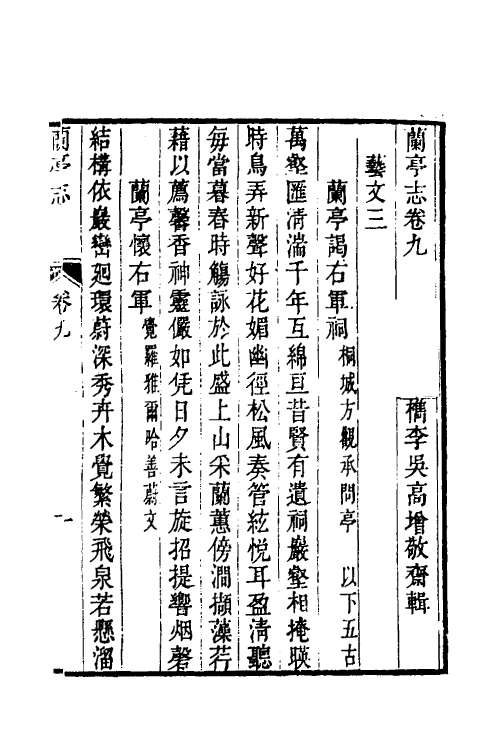 蘭亭志卷九
檇李吳高增敬齋輯
藝文三
蘭亭謁右軍祠 桐城方觀承問亭 以下五古
萬壑匯清湍千年互綿亘昔賢有遺祠巖壑相掩映
時鳥弄新聲好花媚幽徑松風奏管絃悅耳盈清聽
每當暮春時觴詠於此盛上山采蘭蕙傍澗擷藻荇
藉以薦馨香神靈儼如凭日夕未言旋招提響烟磬
蘭亭懷右軍 覺羅雅爾哈善蔚文
結構依巖巒廻環蔚深秀卉木覺繁榮飛泉若懸溜
蘭亭志 卷九 一